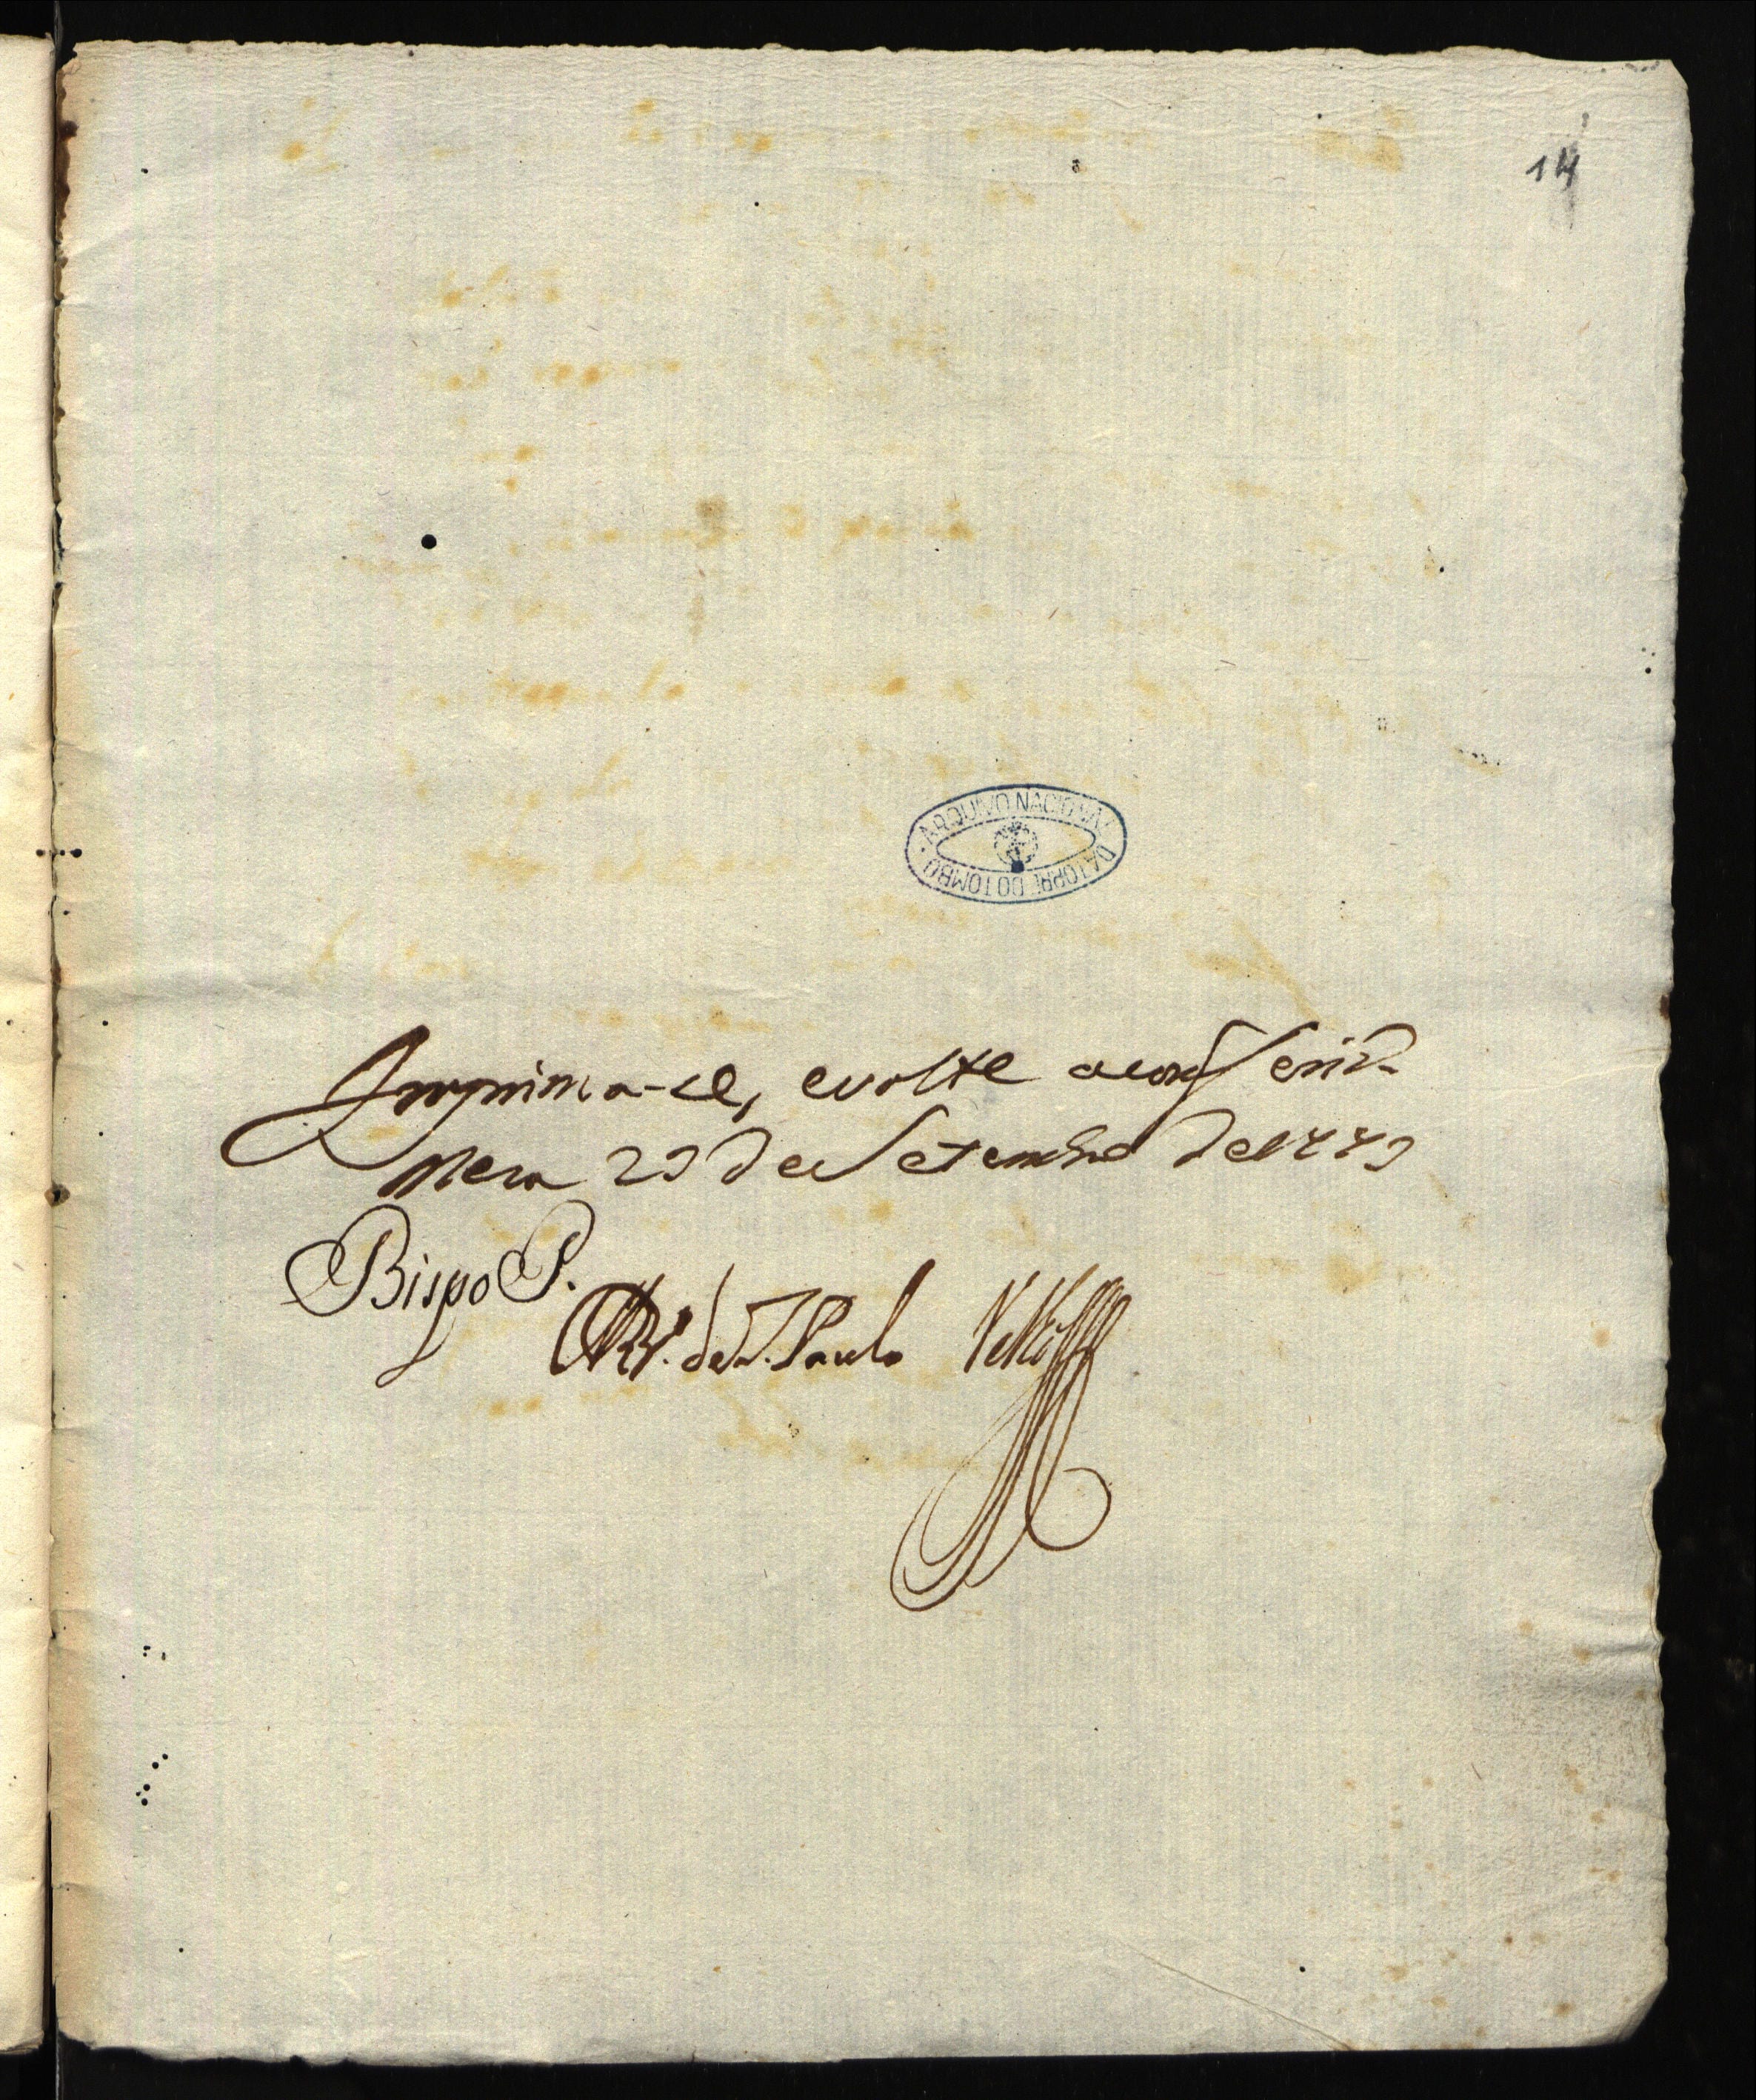 14
ARQUIVO NACIONAL DA TORRE DO TOMBO
Imprima-se, evolte aconferir
Meza 23 de Setembro de 1779
Bispo P.
de S. Paulo